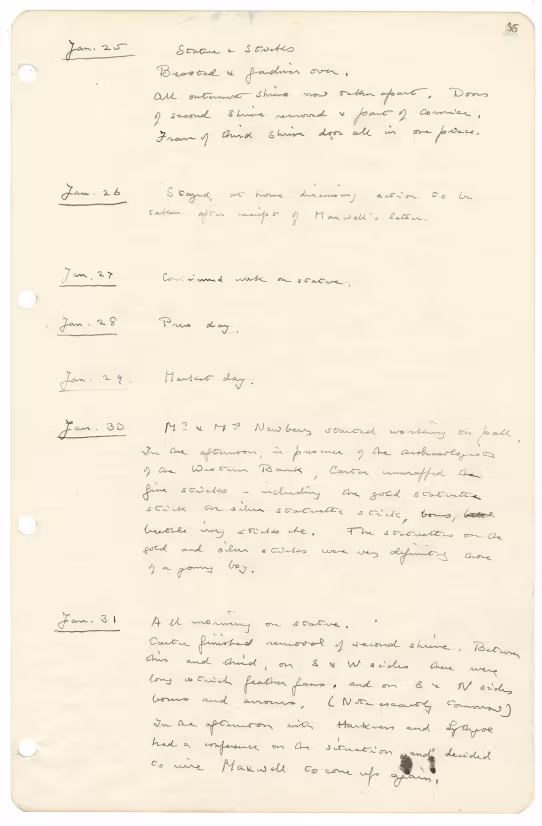 35
Jan. 25 Statue & Sticks
Breasted & Gardiner over.
All outermost shrine now taken apart. Doors
of second shrine removed & part of cornice.
Frame of third shrine door all in one piece.
Jan. 26 Stayed at home discussing action to be
taken after receipt of Maxwell's letter.
Jan. 27 Continued work on statue.
Jan. 28 Press day.
Jan. 29. Market day.
Jan. 30 Mr & Mrs Newberry started working on pall.
In the afternoon, in presence of the archaeologists
of the Western Bank, Carter unwrapped the
five sticks – including the gold statuette
stick the silver statuette stick, bows,
beetle wing sticks etc. The statuettes on the
gold and silver sticks were very definitely those
of a young boy.
Jan. 31 All morning on statue.
Carter finished removal of second shrine. Between
this and third, on S & W sides there were
long ostrich feather fans, and on S & N sides
bows and arrows. (Note exactly tomorrow)
In the afternoon with Harkness and Lythgoe
had a conference on the situation and decided
to wire Maxwell to come up again.